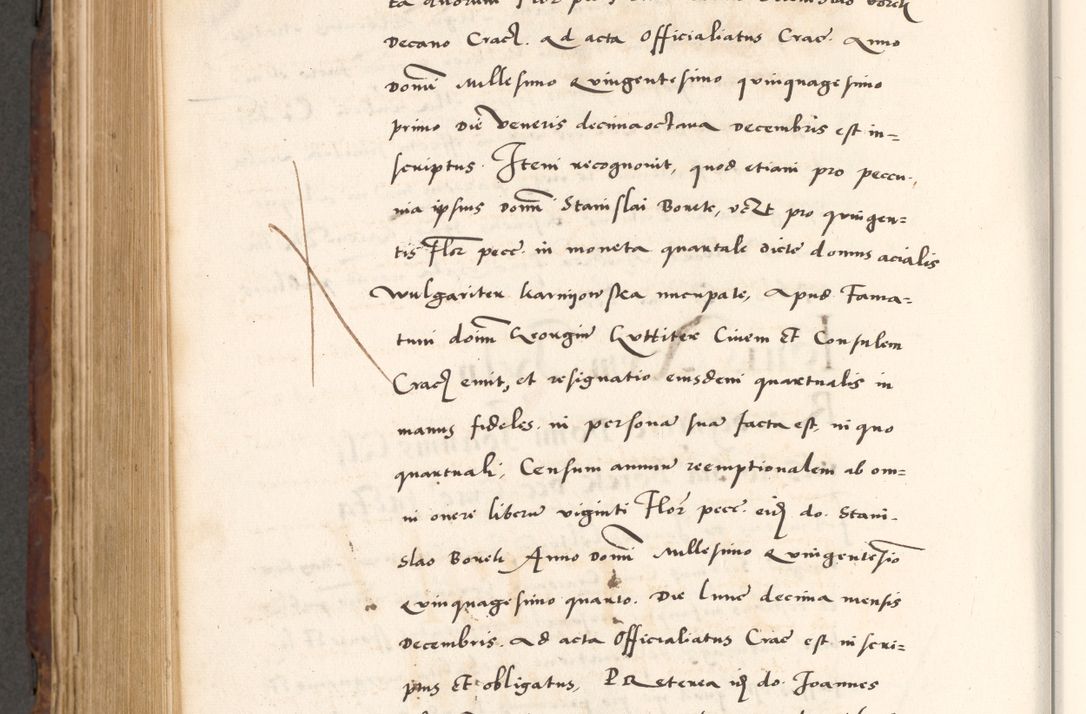 Decano Crac̄. Ad acta Officialiatus Crac̄. Anno
Domi͞ Millesimo Quingentesimo quinquagesimo
primo Die Veneris decimaoctava Decembris est in=
scriptus. Item recognovit, quod etiam pro peccu-
nia ipsius Domi͞ Stanislai Borek, vcZt pro quingen=
tis Flor̄ pecc̄. in moneta quartale dicte domus acialis
Wulgariter Karniowska nucupate, Apud Fama=
tum doim͞ Georgiū Gutteter Civem Et Consulem
Crac̄ emit, et resignatio eiusdem quartualis in
manus fideles in persona sua facta est, in quo
quartuali, Censum annuū reemptionalem ab om=
ni onere liberū viginti Flor̄ pecc̄. eid̄ do. Stani-
slao Borek Anno Domi͞ Millesimo Quingentesio͞
Quinquagesimo quarto. Die lune decima mensis
Decembris. Ad acta Officialiatus Crac̄ est in scri=
ptus Et obligatus, PRæterea id̄ do. Joannes